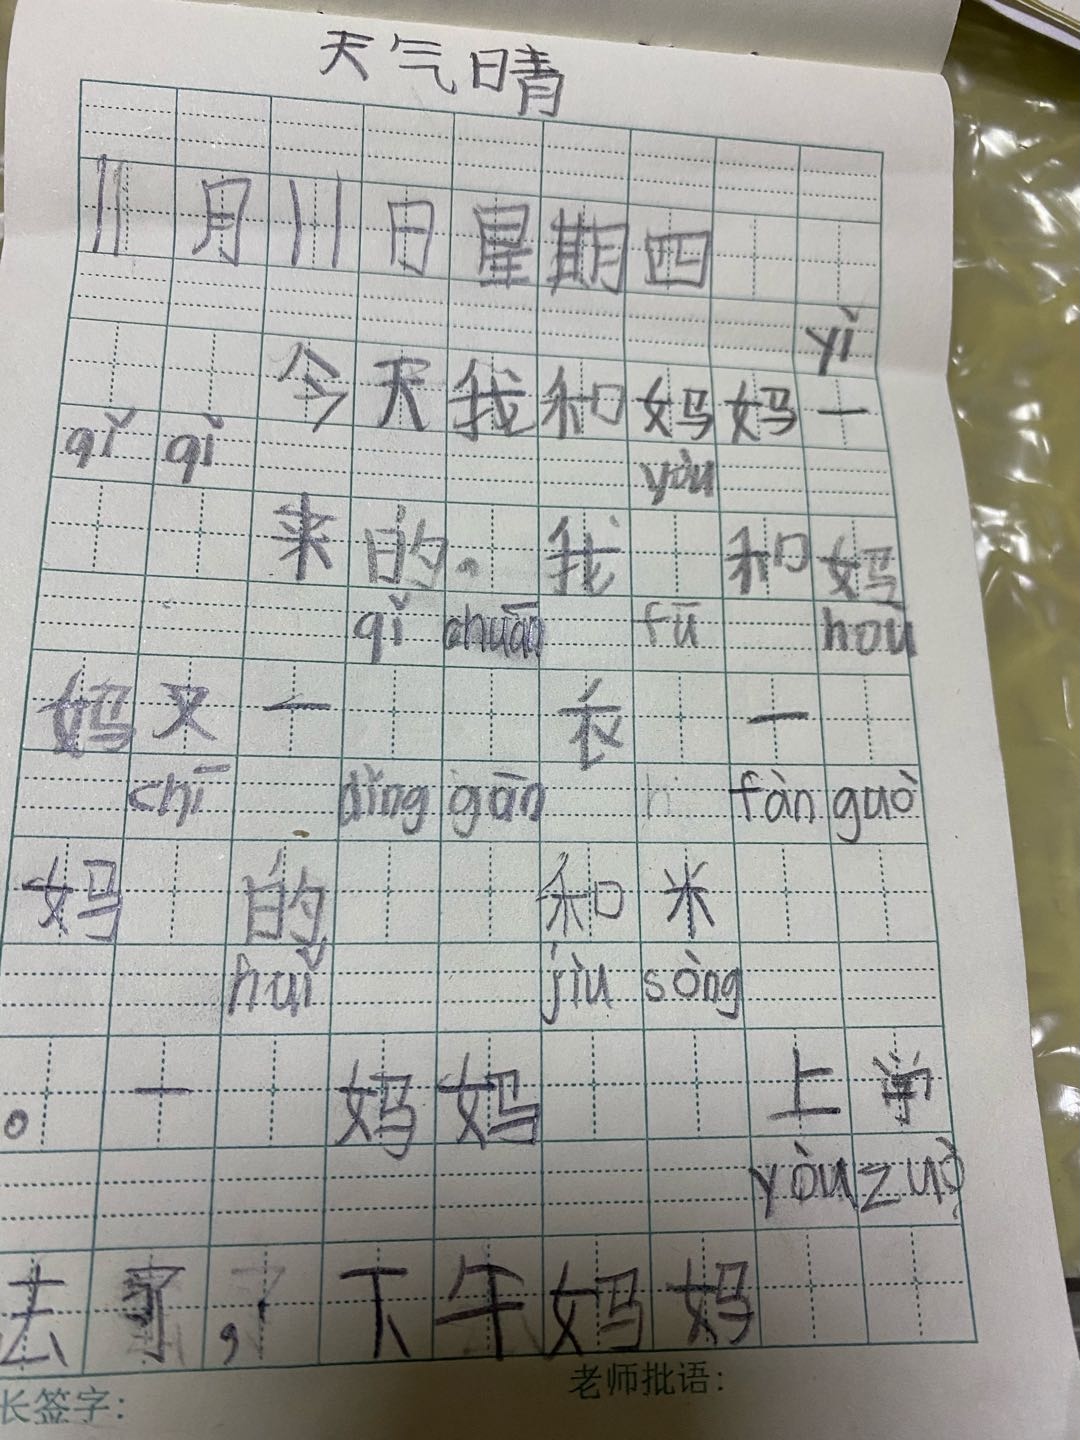 天气晴
11月11日星期四
yǐ
今天我和妈妈一
qǐ qǐ yòu
来的。我 和妈
qǐ chuān fū hòu
妈又一 衣 一
chī dǐng gān fàn guò
妈 的 和米
huǐ jiù sòng
。一 妈妈 上学
yòu zuò
去了，下午妈妈
长签字: 老师批语: